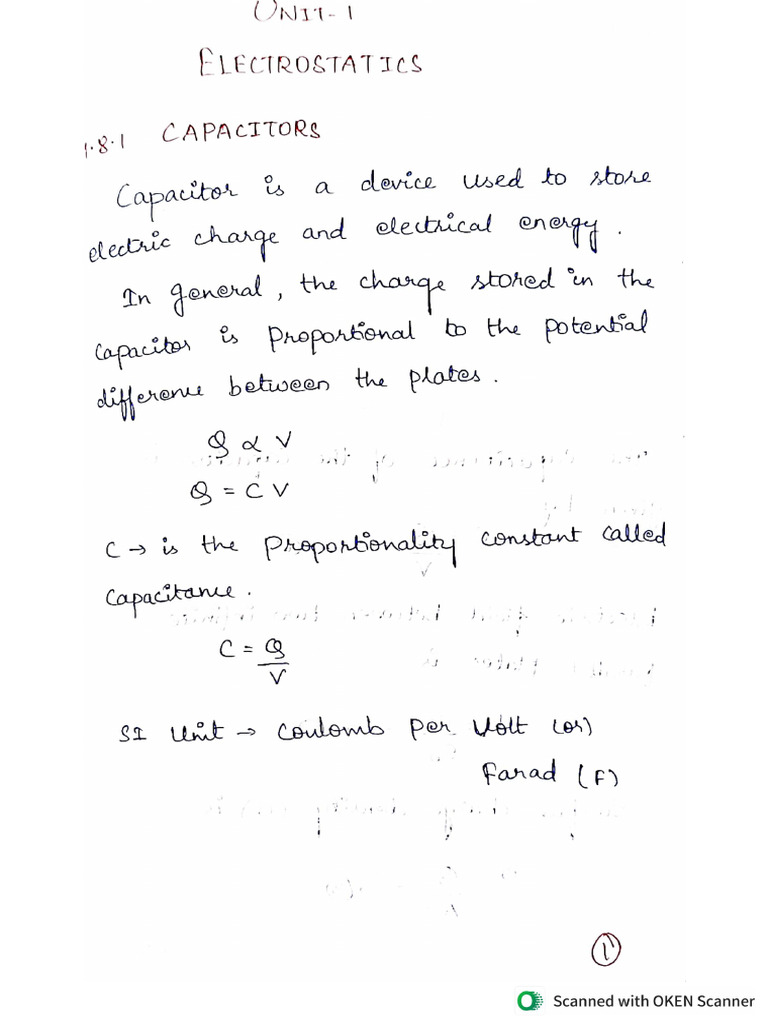 UNIT-1
ELECTROSTATICS
1.8.1 CAPACITORS
Capacitor is a device used to store
electric charge and electrical energy.
In general, the charge stored in the
capacitor is proportional to the potential
difference between the plates.
Q ∝ V
Q = CV
C → is the proportionality constant called
capacitance.
C = Q
V
SI Unit → Coulomb per Volt (or)
Farad (F)
1
Scanned with OKEN Scanner